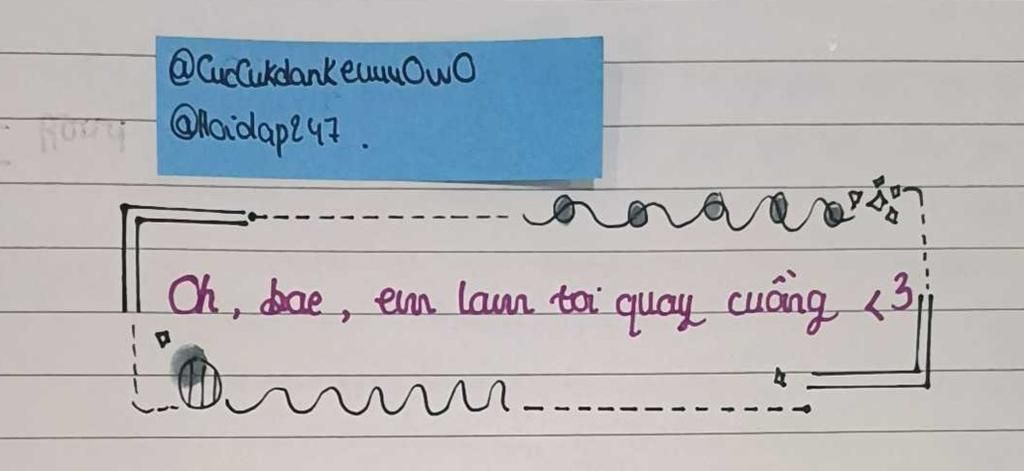 @CucCukdanKeuuuOwO
@Hoidap247.
Oh, bae, em lam toi quay cuồng <3